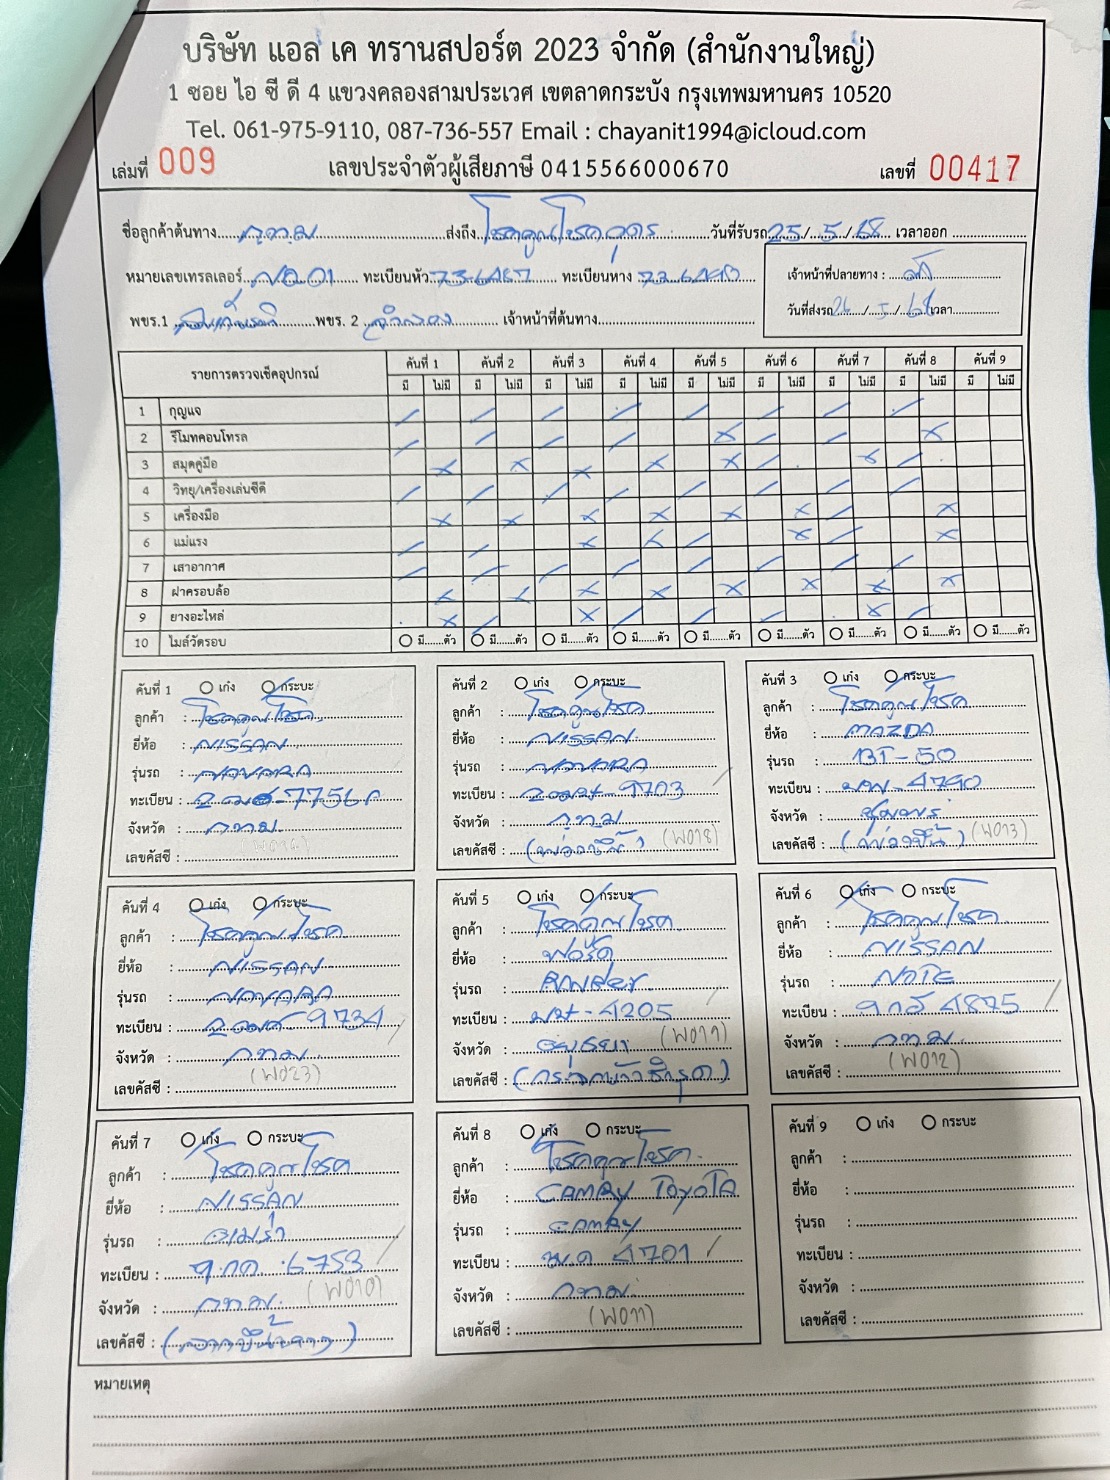 บริษัท แอล เค ทรานสปอร์ต 2023 จำกัด (สำนักงานใหญ่)
1 ซอย ไอ ซี ดี 4 แขวงคลองสามประเวศ เขตลาดกระบัง กรุงเทพมหานคร 10520
Tel. 061-975-9110, 087-736-557 Email : chayanit1994@icloud.com
เล่มที่ 009 เลขประจำตัวผู้เสียภาษี 0415566000670 เลขที่ 00417
ชื่อลูกค้าต้นทาง กทม ส่งถึง โชคคูณโชคอุดร วันที่รับรถ 25/5/68 เวลาออก
หมายเลขเทรลเลอร์ ทะเบียนหัว ทะเบียนหาง เจ้าหน้าที่ปลายทาง :
พขร.1 พขร. 2 เจ้าหน้าที่ต้นทาง วันที่ส่งรถ 26/5/68 เวลา
รายการตรวจเช็คอุปกรณ์ คันที่ 1 คันที่ 2 คันที่ 3 คันที่ 4 คันที่ 5 คันที่ 6 คันที่ 7 คันที่ 8 คันที่ 9
มี ไม่มี มี ไม่มี มี ไม่มี มี ไม่มี มี ไม่มี มี ไม่มี มี ไม่มี มี ไม่มี มี ไม่มี
1 กุญแจ
2 รีโมทคอนโทรล
3 สมุดคู่มือ
4 วิทยุ/เครื่องเล่นซีดี
5 เครื่องมือ
6 แม่แรง
7 เสาอากาศ
8 ฝาครอบล้อ
9 ยางอะไหล่
10 ไมล์วัดรอบ มี......ตัว มี......ตัว มี......ตัว มี......ตัว มี......ตัว มี......ตัว มี......ตัว มี......ตัว มี......ตัว
คันที่ 1 เก๋ง กระบะ
ลูกค้า : โชคคูณโชค
ยี่ห้อ : NISSAN
รุ่นรถ : NAVARA
ทะเบียน :
จังหวัด : กทม.
เลขคัสซี :
คันที่ 2 เก๋ง กระบะ
ลูกค้า : โชคคูณโชค
ยี่ห้อ : NISSAN
รุ่นรถ : NAVARA
ทะเบียน : 9703
จังหวัด : กทม
เลขคัสซี : (W018)
คันที่ 3 เก๋ง กระบะ
ลูกค้า : โชคคูณโชค
ยี่ห้อ : MAZDA
รุ่นรถ : BT-50
ทะเบียน : 4790
จังหวัด : ชุมพร
เลขคัสซี : (W013)
คันที่ 4 เก๋ง กระบะ
ลูกค้า : โชคคูณโชค
ยี่ห้อ : NISSAN
รุ่นรถ : NAVARA
ทะเบียน : 9734
จังหวัด : กทม
เลขคัสซี : (W023)
คันที่ 5 เก๋ง กระบะ
ลูกค้า : โชคคูณโชค
ยี่ห้อ : ฟอร์ด
รุ่นรถ :
ทะเบียน : 4205
จังหวัด : อยุธยา (W019)
เลขคัสซี : (กระจกหน้าชำรุด)
คันที่ 6 เก๋ง กระบะ
ลูกค้า : โชคคูณโชค
ยี่ห้อ : NISSAN
รุ่นรถ : NOTE
ทะเบียน : 9กส 4875
จังหวัด : กทม
เลขคัสซี : (W012)
คันที่ 7 เก๋ง กระบะ
ลูกค้า : โชคคูณโชค
ยี่ห้อ : NISSAN
รุ่นรถ : อเมร่า
ทะเบียน : 9กด 6753
จังหวัด : กทม. (W010)
เลขคัสซี :
คันที่ 8 เก๋ง กระบะ
ลูกค้า : โชคคูณโชค
ยี่ห้อ : CAMRY TOYOTA
รุ่นรถ : CAMRY
ทะเบียน : 4701
จังหวัด : กทม.
เลขคัสซี : (W011)
คันที่ 9 เก๋ง กระบะ
ลูกค้า :
ยี่ห้อ :
รุ่นรถ :
ทะเบียน :
จังหวัด :
เลขคัสซี :
หมายเหตุ